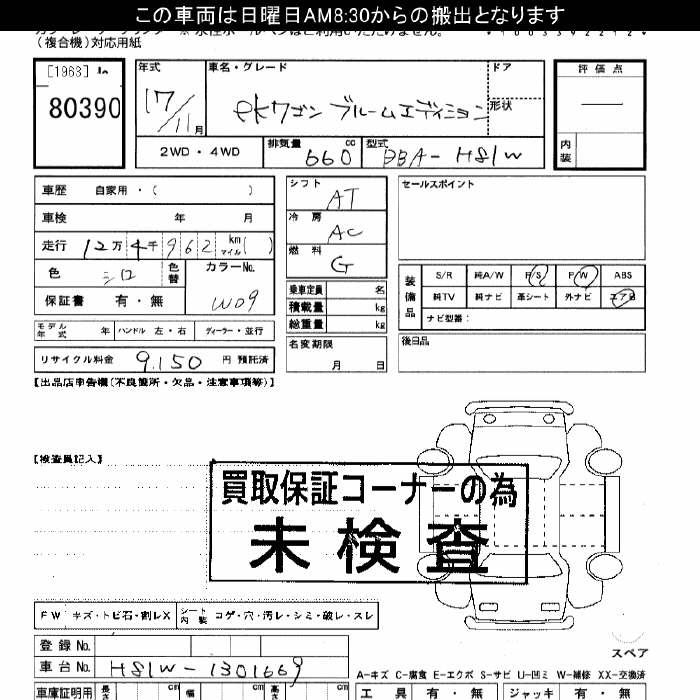 この車両は日曜日AM8:30からの搬出となります
(複合機)対応用紙
[1963]
80390
年式
17/11月
車名・グレード
ekワゴン ブルームエディション
ドア
形状
評価点
―
内装
2WD・4WD
排気量 660 cc
型式 DBA-H81W
車歴 自家用・( )
車検 年 月
走行 12万4千962 km マイル( )
色 シロ
色替
カラーNo. W09
保証書 有・無
モデル年式 年
ハンドル 左・右
ディーラー・並行
リサイクル料金 9,150 円 預託済
シフト AT
冷房 AC
燃料 G
乗車定員 名
積載量 kg
総重量 kg
名変期限 月 日
セールスポイント
装備品
S/R 純A/W P/S P/W ABS
純TV 純ナビ 革シート 外ナビ エアB
ナビ型番:
後日品
【出品店申告欄(不良箇所・欠品・注意事項等)】
【検査員記入】
買取保証コーナーの為
未検査
FW キズ・トビ石・割レX
シート内装 コゲ・穴・汚レ・シミ・破レ・スレ
登録No.
車台No. H81W-1301669
スペア
A-キズ C-腐食 E-エクボ S-サビ U-凹ミ W-補修 XX-交換済
車庫証明用 長さ cm 幅 cm 高さ cm
工具 有・無 ジャッキ 有・無